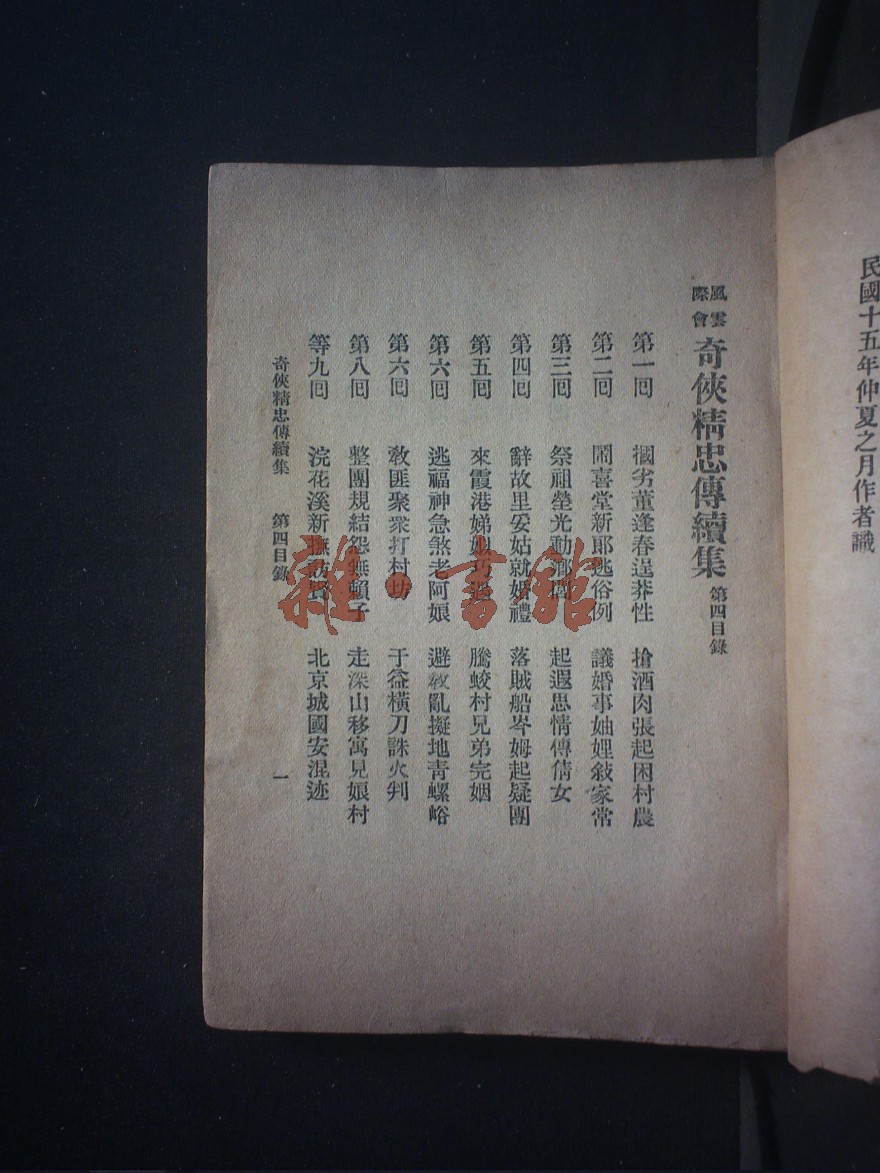 民國十五年仲夏之月作者識
風雲際會 奇俠精忠傳續集 第四目錄
第一回 摑劣董逢春逞莽性 搶酒肉張起困村農
第二回 鬧喜堂新郎逃俗例 議婚事妯娌敍家常
第三回 祭祖塋光動鄉閭 起遐思情傳倩女
第四回 辭故里安姑就婚禮 落賊船岑姆起疑團
第五回 來霞港娣姒巧遇 騰蛟村兄弟完姻
第六回 逃福神急煞老阿娘 避敎亂擬地靑螺峪
第六回 敎匪聚衆打村坊 于益橫刀誅火判
第八回 整團規結怨無賴子 走深山移寓見娘村
等九回 浣花溪新撫訪賢 北京城國安混迹
奇俠精忠傳續集 第四目錄 一
雜·書館